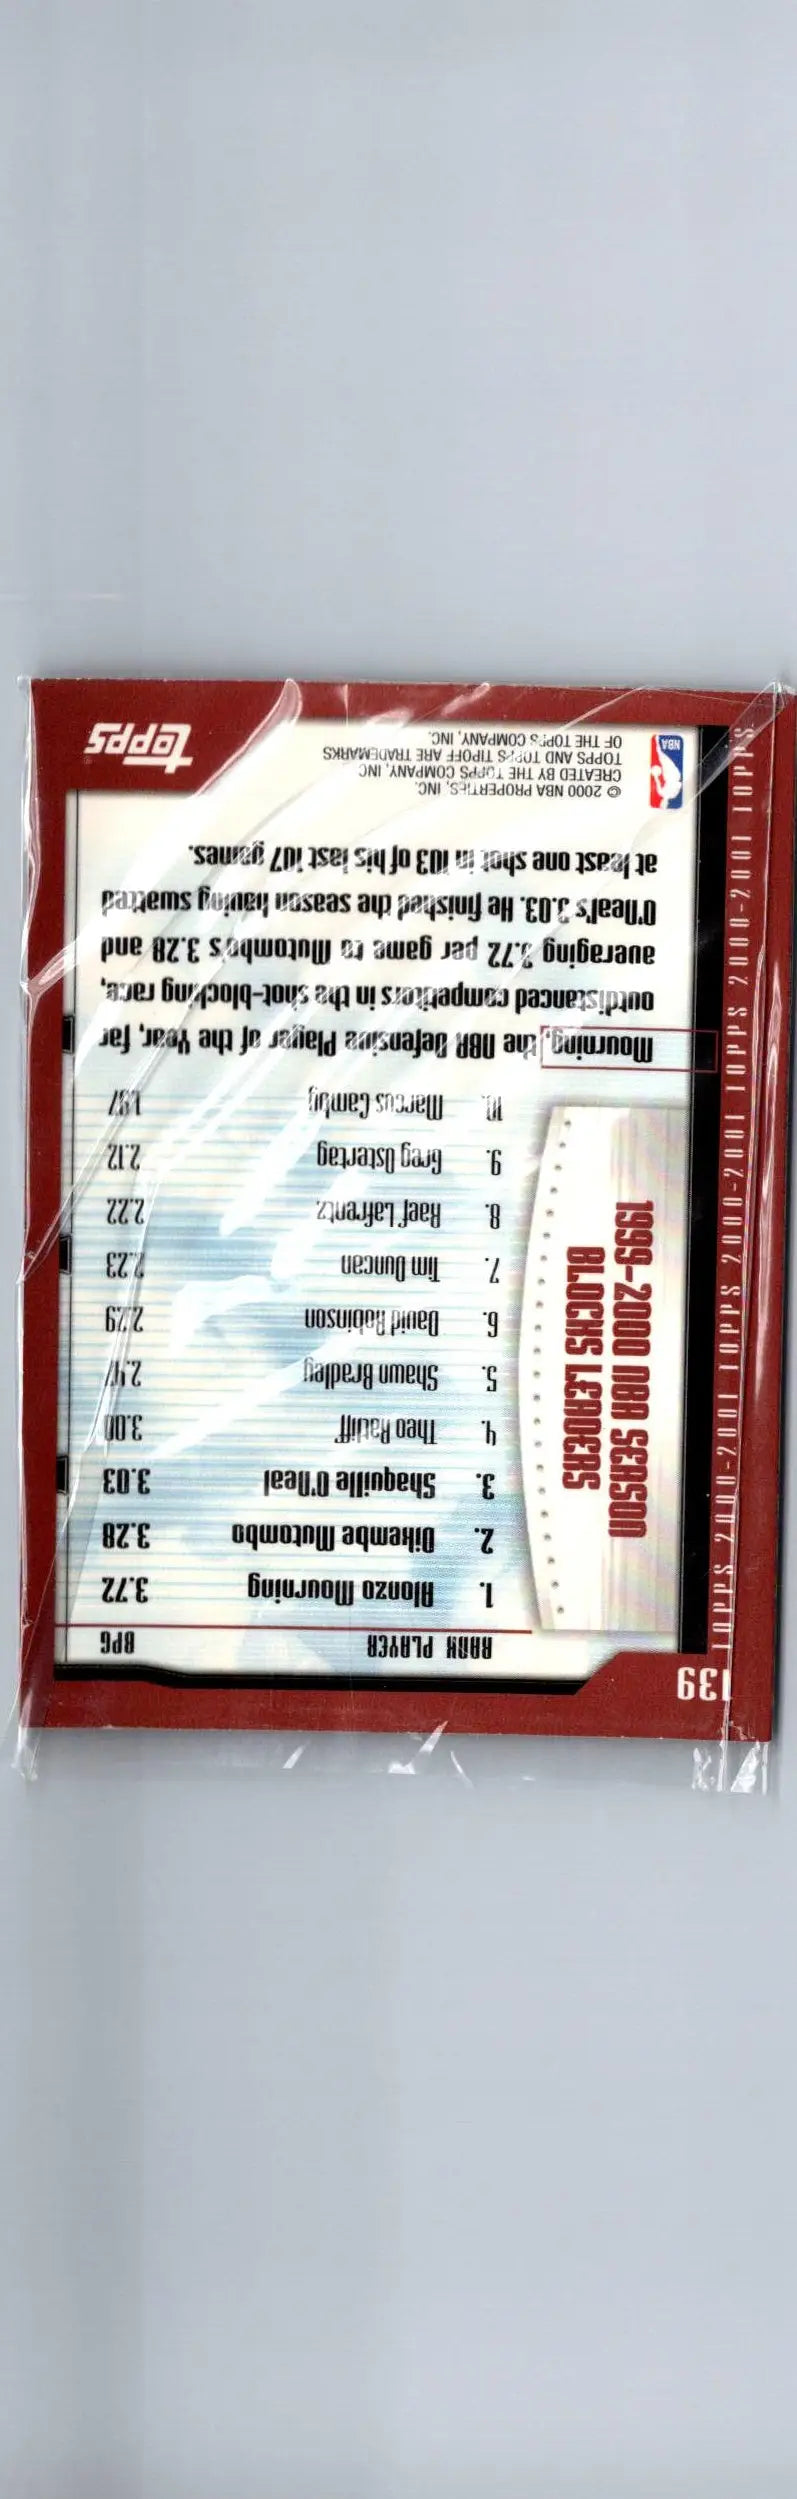 139
RANK PLAYER BPG
1. Alonzo Mourning 3.72
2. Dikembe Mutombo 3.28
3. Shaquille O'Neal 3.03
4. Theo Ratliff 3.00
5. Shawn Bradley 2.47
6. David Robinson 2.29
7. Tim Duncan 2.23
8. Raef Lafrentz 2.22
9. Greg Ostertag 2.12
10. Marcus Camby 1.97
1999-2000 NBA SEASON
BLOCKS LEADERS
Mourning, the NBA Defensive Player of the Year, far
outdistanced competitors in the shot-blocking race,
averaging 3.72 per game to Mutombo's 3.28 and
O'Neal's 3.03. He finished the season having swatted
at least one shot in 103 of his last 107 games.
© 2000 NBA PROPERTIES, INC.
CREATED BY THE TOPPS COMPANY, INC.
TOPPS AND TOPPS TIPOFF ARE TRADEMARKS
OF THE TOPPS COMPANY, INC.
NBA
Topps
TOPPS 2000-2001 TOPPS 2000-2001 TOPPS 2000-2001 TOPPS